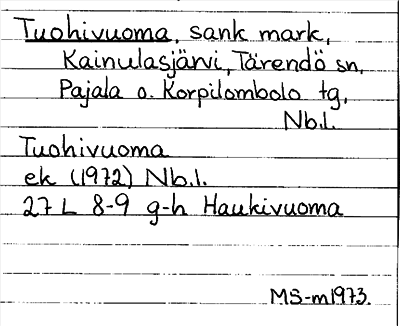 Tuohivuoma, sank mark,
Kainulasjärvi, Tärendö sn,
Pajala o. Korpilombolo tg,
Nb.l.
Tuohivuoma
ek (1972) Nb.l.
27 L 8-9 g-h Haukivuoma
MS-m1973.